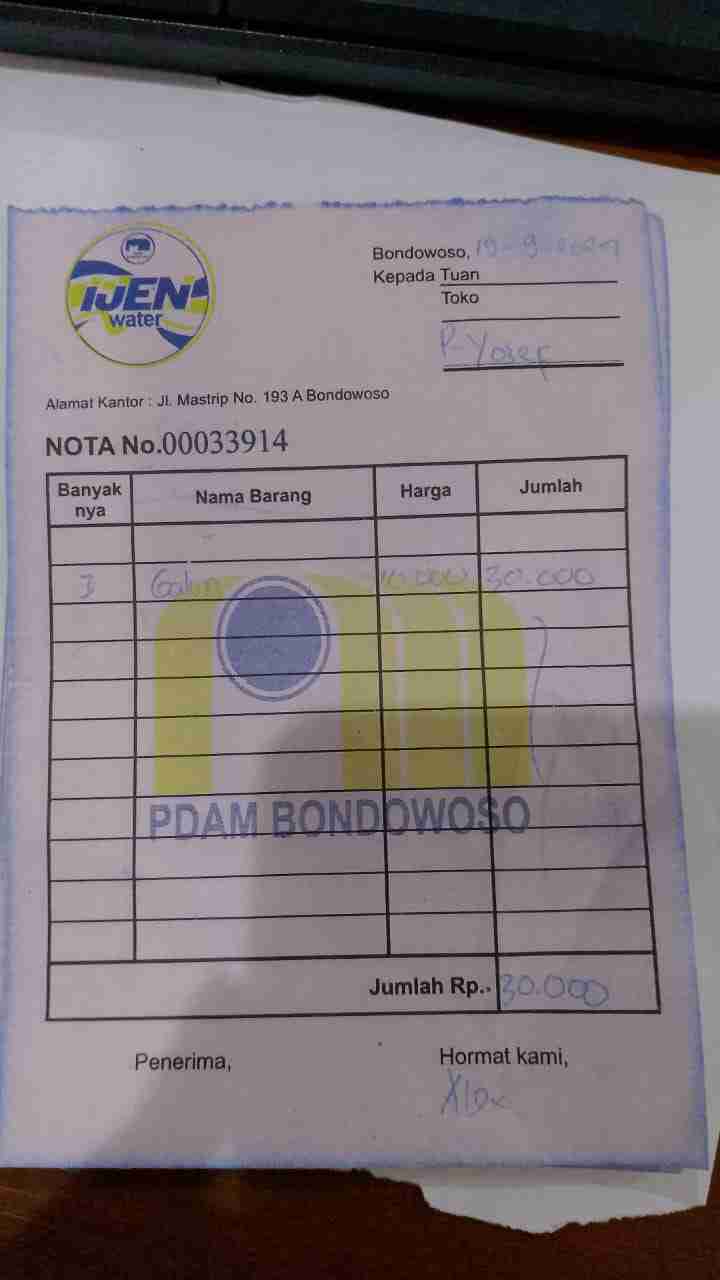 iJEN
water
Bondowoso, 19-9-2024
Kepada Tuan
Toko
P-Yosef
Alamat Kantor : Jl. Mastrip No. 193 A Bondowoso
NOTA No.00033914
Banyak nya Nama Barang Harga Jumlah
3 Galon 10.000 30.000
PDAM BONDOWOSO
Jumlah Rp.. 30.000
Penerima, Hormat kami,